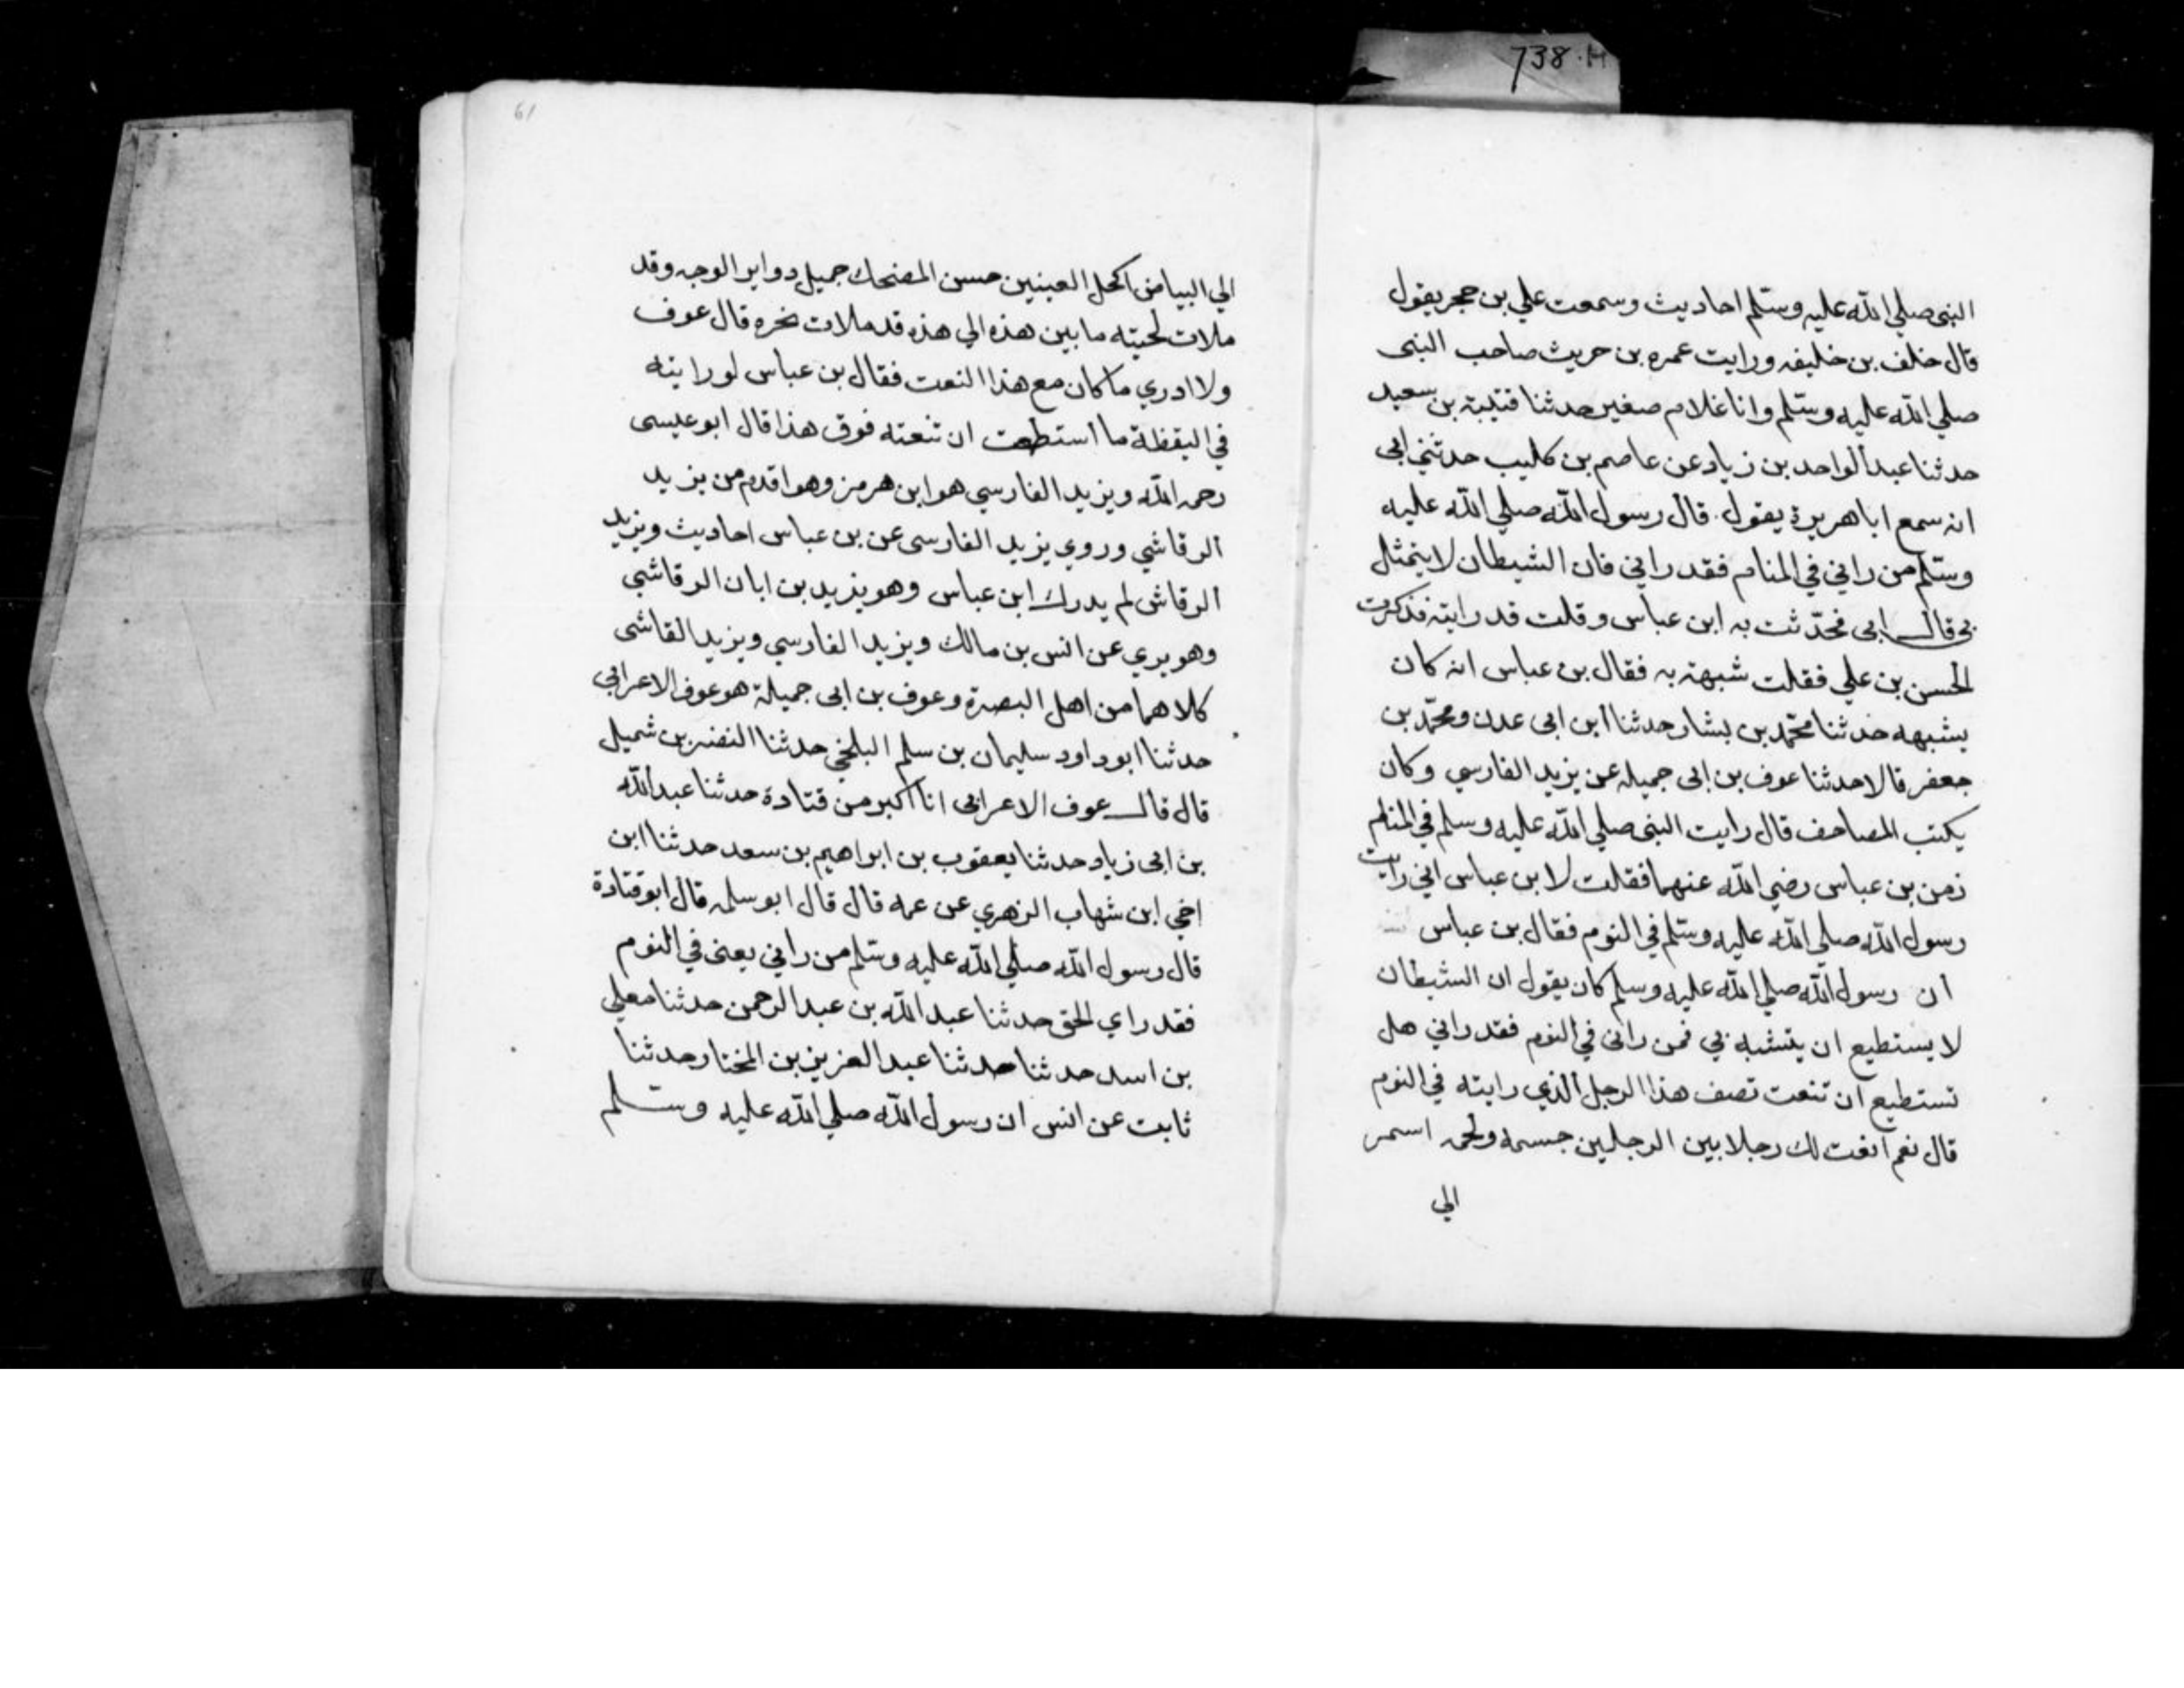 738.H
النبى صلي الله عليه وسلم احاديث وسمعت علي بن حجر يقول
قال خلف بن خليفه ورايت عمرو بن حريث صاحب النبى
صلي الله عليه وسلم وانا غلام صغير حدثنا قتيبة بن سعيد
حدثنا عبد الواحد بن زياد عن عاصم بن كليب حدثني ابى
انه سمع ابا هريرة يقول قال رسول الله صلي الله عليه
وسلم من راني في المنام فقد راني فان الشيطان لا يتمثل
بى قال ابى فحدثت به ابن عباس وقلت قد رايته فذكرت
الحسن بن علي فقلت شبهته به فقال بن عباس انه كان
يشبهه حدثنا محمد بن بشار حدثنا ابن ابى عدن ومحمد بن
جعفر قالا حدثنا عوف بن ابى جميله عن يزيد الفارسي وكان
يكتب المصاحف قال رايت النبى صلي الله عليه وسلم في المنام
زمن بن عباس رضي الله عنهما فقلت لابن عباس اني رايت
رسول الله صلي الله عليه وسلم في النوم فقال بن عباس
ان رسول الله صلي الله عليه وسلم كان يقول ان الشيطان
لا يستطيع ان يتشبه بي فمن رانى في النوم فقد راني هل
تستطيع ان تنعت تصف هذا الرجل الذي رايته في النوم
قال نعم انعت لك رجلا بين الرجلين جسمه ولحمه اسمر
الي
61
الي البياض اكحل العينين حسن المضحك جميل دواير الوجه وقد
ملات لحيته ما بين هذه الي هذه قد ملات نحره قال عوف
ولا ادري ما كان مع هذا النعت فقال بن عباس لو رايته
في اليقظة ما استطعت ان تنعته فوق هذا قال ابو عيسى
رحمه الله ويزيد الفارسي هو ابن هرمز وهو اقدم من يزيد
الرقاشي وروي يزيد الفارسى عن بن عباس احاديث ويزيد
الرقاش لم يدرك ابن عباس وهو يزيد بن ابان الرقاشي
وهو يري عن انس بن مالك ويزيد الفارسي ويزيد القاشى
كلاهما من اهل البصرة وعوف بن ابى جميلة هو عوف الاعرابي
حدثنا ابو داود سليمان بن سلم البلخي حدثنا النضر بن شميل
قال قال عوف الاعرابى انا اكبر من قتادة حدثنا عبد الله
بن ابى زياد حدثنا يعقوب بن ابراهيم بن سعد حدثنا ابن
اخي ابن شهاب الزهري عن عمه قال قال ابو سلمه قال ابو قتادة
قال رسول الله صلي الله عليه وسلم من راني يعنى في النوم
فقد راي الحق حدثنا عبد الله بن عبد الرحمن حدثنا معلي
بن اسد حدثنا حدثنا عبد العزيز بن المختار حدثنا
ثابت عن انس ان رسول الله صلي الله عليه وسلم